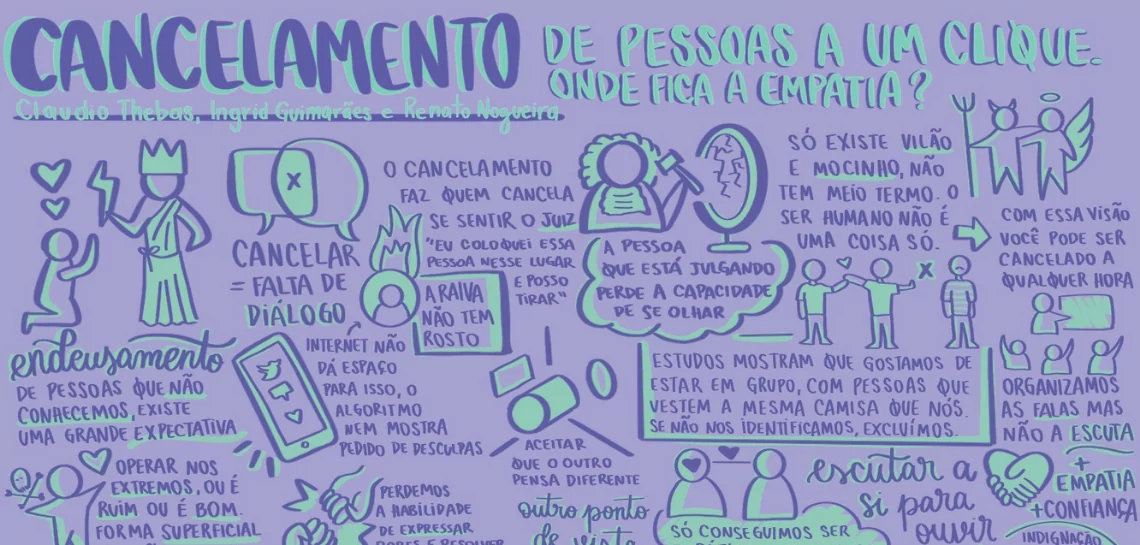 CANCELAMENTO
DE PESSOAS A UM CLIQUE.
ONDE FICA A EMPATIA?
Claudio Thebas, Ingrid Guimarães e Renato Nogueira
CANCELAR
= FALTA DE
DIÁLOGO
O CANCELAMENTO
FAZ QUEM CANCELA
SE SENTIR O JUIZ
"EU COLOQUEI ESSA
PESSOA NESSE LUGAR
E POSSO
TIRAR"
A RAIVA
NÃO TEM
ROSTO
A PESSOA
QUE ESTÁ JULGANDO
PERDE A CAPACIDADE
DE SE OLHAR
SÓ EXISTE VILÃO
E MOCINHO, NÃO
TEM MEIO TERMO. O
SER HUMANO NÃO É
UMA COISA SÓ.
COM ESSA VISÃO
VOCÊ PODE SER
CANCELADO A
QUALQUER HORA
endeusamento
DE PESSOAS QUE NÃO
CONHECEMOS, EXISTE
UMA GRANDE EXPECTATIVA
INTERNET NÃO
DÁ ESPAÇO
PARA ISSO, O
ALGORITMO
NEM MOSTRA
PEDIDO DE DESCULPAS
ACEITAR
QUE O OUTRO
PENSA DIFERENTE
ESTUDOS MOSTRAM QUE GOSTAMOS DE
ESTAR EM GRUPO, COM PESSOAS QUE
VESTEM A MESMA CAMISA QUE NÓS.
SE NÃO NOS IDENTIFICAMOS, EXCLUÍMOS.
ORGANIZAMOS
AS FALAS MAS
NÃO A ESCUTA
+
EMPATIA
+CONFIANÇA
INDIGNAÇÃO
OPERAR NOS
EXTREMOS, OU É
RUIM OU É BOM.
FORMA SUPERFICIAL
PERDEMOS
A HABILIDADE
DE EXPRESSAR
outro ponto
de vista
SÓ CONSEGUIMOS SER
escutar a
si para
ouvir